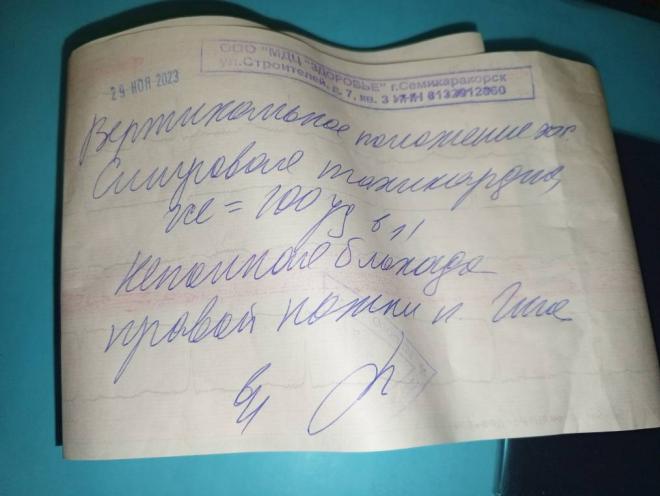 29 НОЯ 2023
ООО "МДЦ "ЗДОРОВЬЕ" г.Семикаракорск
ул.Строителей, д. 7, кв. 3 ИНН 6132012060
Вертикальное положение эос
Синусовая тахикардия,
чсс = 100 уд в 1'
Неполная блокада
правой ножки п. Гиса